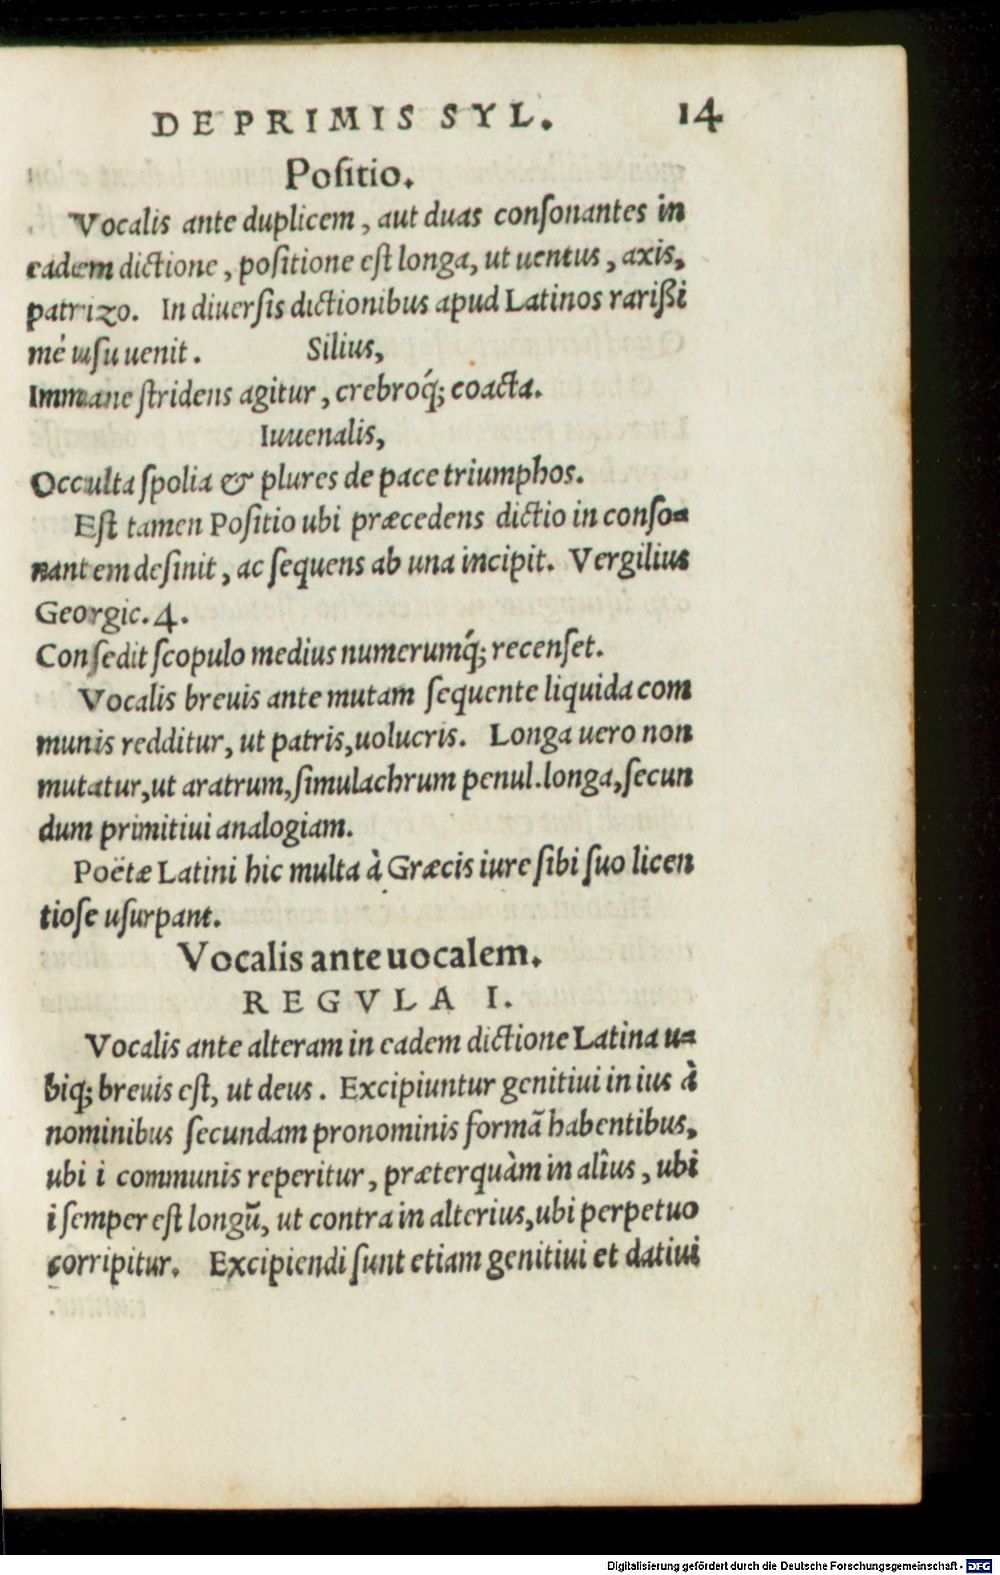 DE PRIMIS SYL. 14
Poſitio.
Vocalis ante duplicem, aut duas conſonantes in
eadem dictione, poſitione eſt longa, ut uentus, axis,
patrizo. In diuerſis dictionibus apud Latinos rarißi
mé uſu uenit. Silius,
Immane ſtridens agitur, crebroq́; coacta.
Iuuenalis,
Occulta ſpolia & plures de pace triumphos.
Eſt tamen Poſitio ubi præcedens dictio in conſo-
nantem deſinit, ac ſequens ab una incipit. Vergilius
Georgic. 4.
Conſedit ſcopulo medius numerumq́; recenſet.
Vocalis breuis ante mutam ſequente liquida com
munis redditur, ut patris, uolucris. Longa uero non
mutatur, ut aratrum, ſimulachrum penul. longa, ſecun
dum primitiui analogiam.
Poëtæ Latini hic multa à Græcis iure ſibi ſuo licen
tioſe uſurpant.
Vocalis ante uocalem.
REGVLA I.
Vocalis ante alteram in eadem dictione Latina u-
biq; breuis eſt, ut deus. Excipiuntur genitiui in ius à
nominibus ſecundam pronominis formã habentibus,
ubi i communis reperitur, præterquàm in alîus, ubi
i ſemper eſt longũ, ut contra in alterius, ubi perpetuo
corripitur. Excipiendi ſunt etiam genitiui et datiui
Digitalisierung gefördert durch die Deutsche Forschungsgemeinschaft - DFG